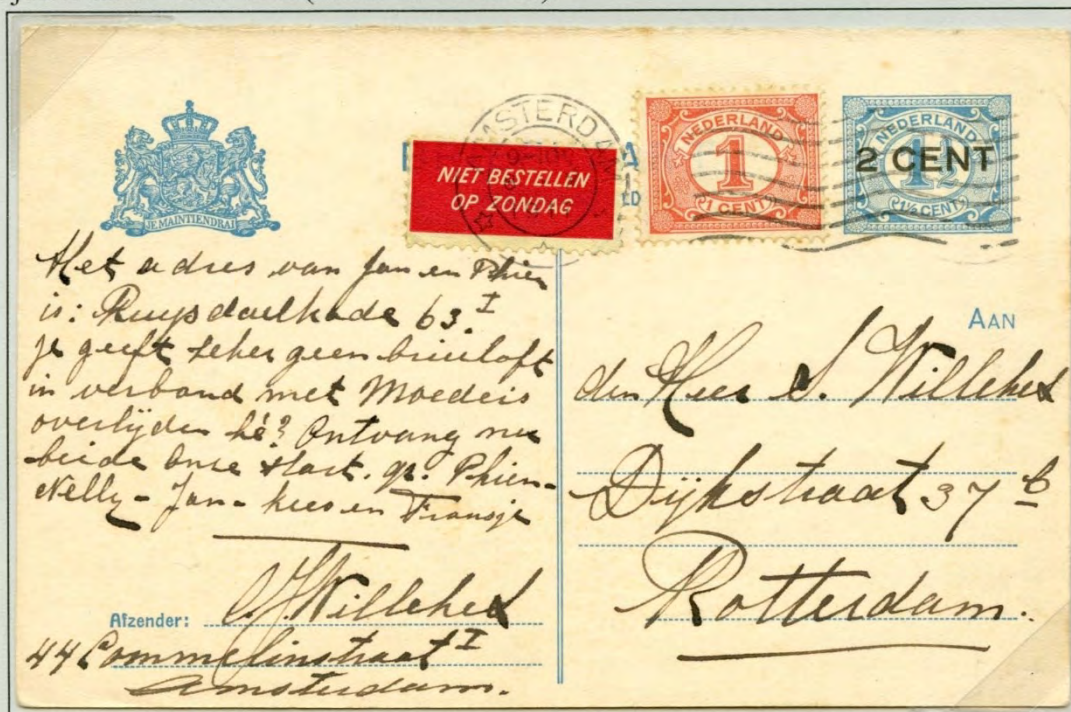 JE MAINTIENDRAI
AMSTERDAM
NIET BESTELLEN
OP ZONDAG
NEDERLAND
1
1 CENT
NEDERLAND
2 CENT
1½
1½ CENT
Het adres van Jan en Phien
is: Ruysdaelkade 63 I
je geeft zeker geen bruiloft
in verband met Moeders
overlijden hè? Ontvang nu
beide onze Hart. gr. Phien-
Nelly - Jan - Kees en Fransje
Afzender: Willekes
44 Commelinstraat I
Amsterdam.
AAN
den Heer S. Willekes
Dijkstraat 37 b
Rotterdam.